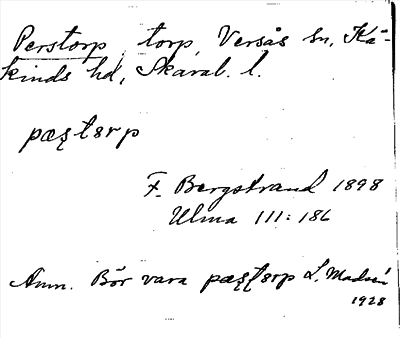 Perstorp, torp, Versås sn, Kå-
kinds hd, Skarab. l.
pæʂtɜrp
F. Bergstrand 1898
Ulma 111:186
Anm. Bör vara pæʂʈɜrp L. Madsén
1928